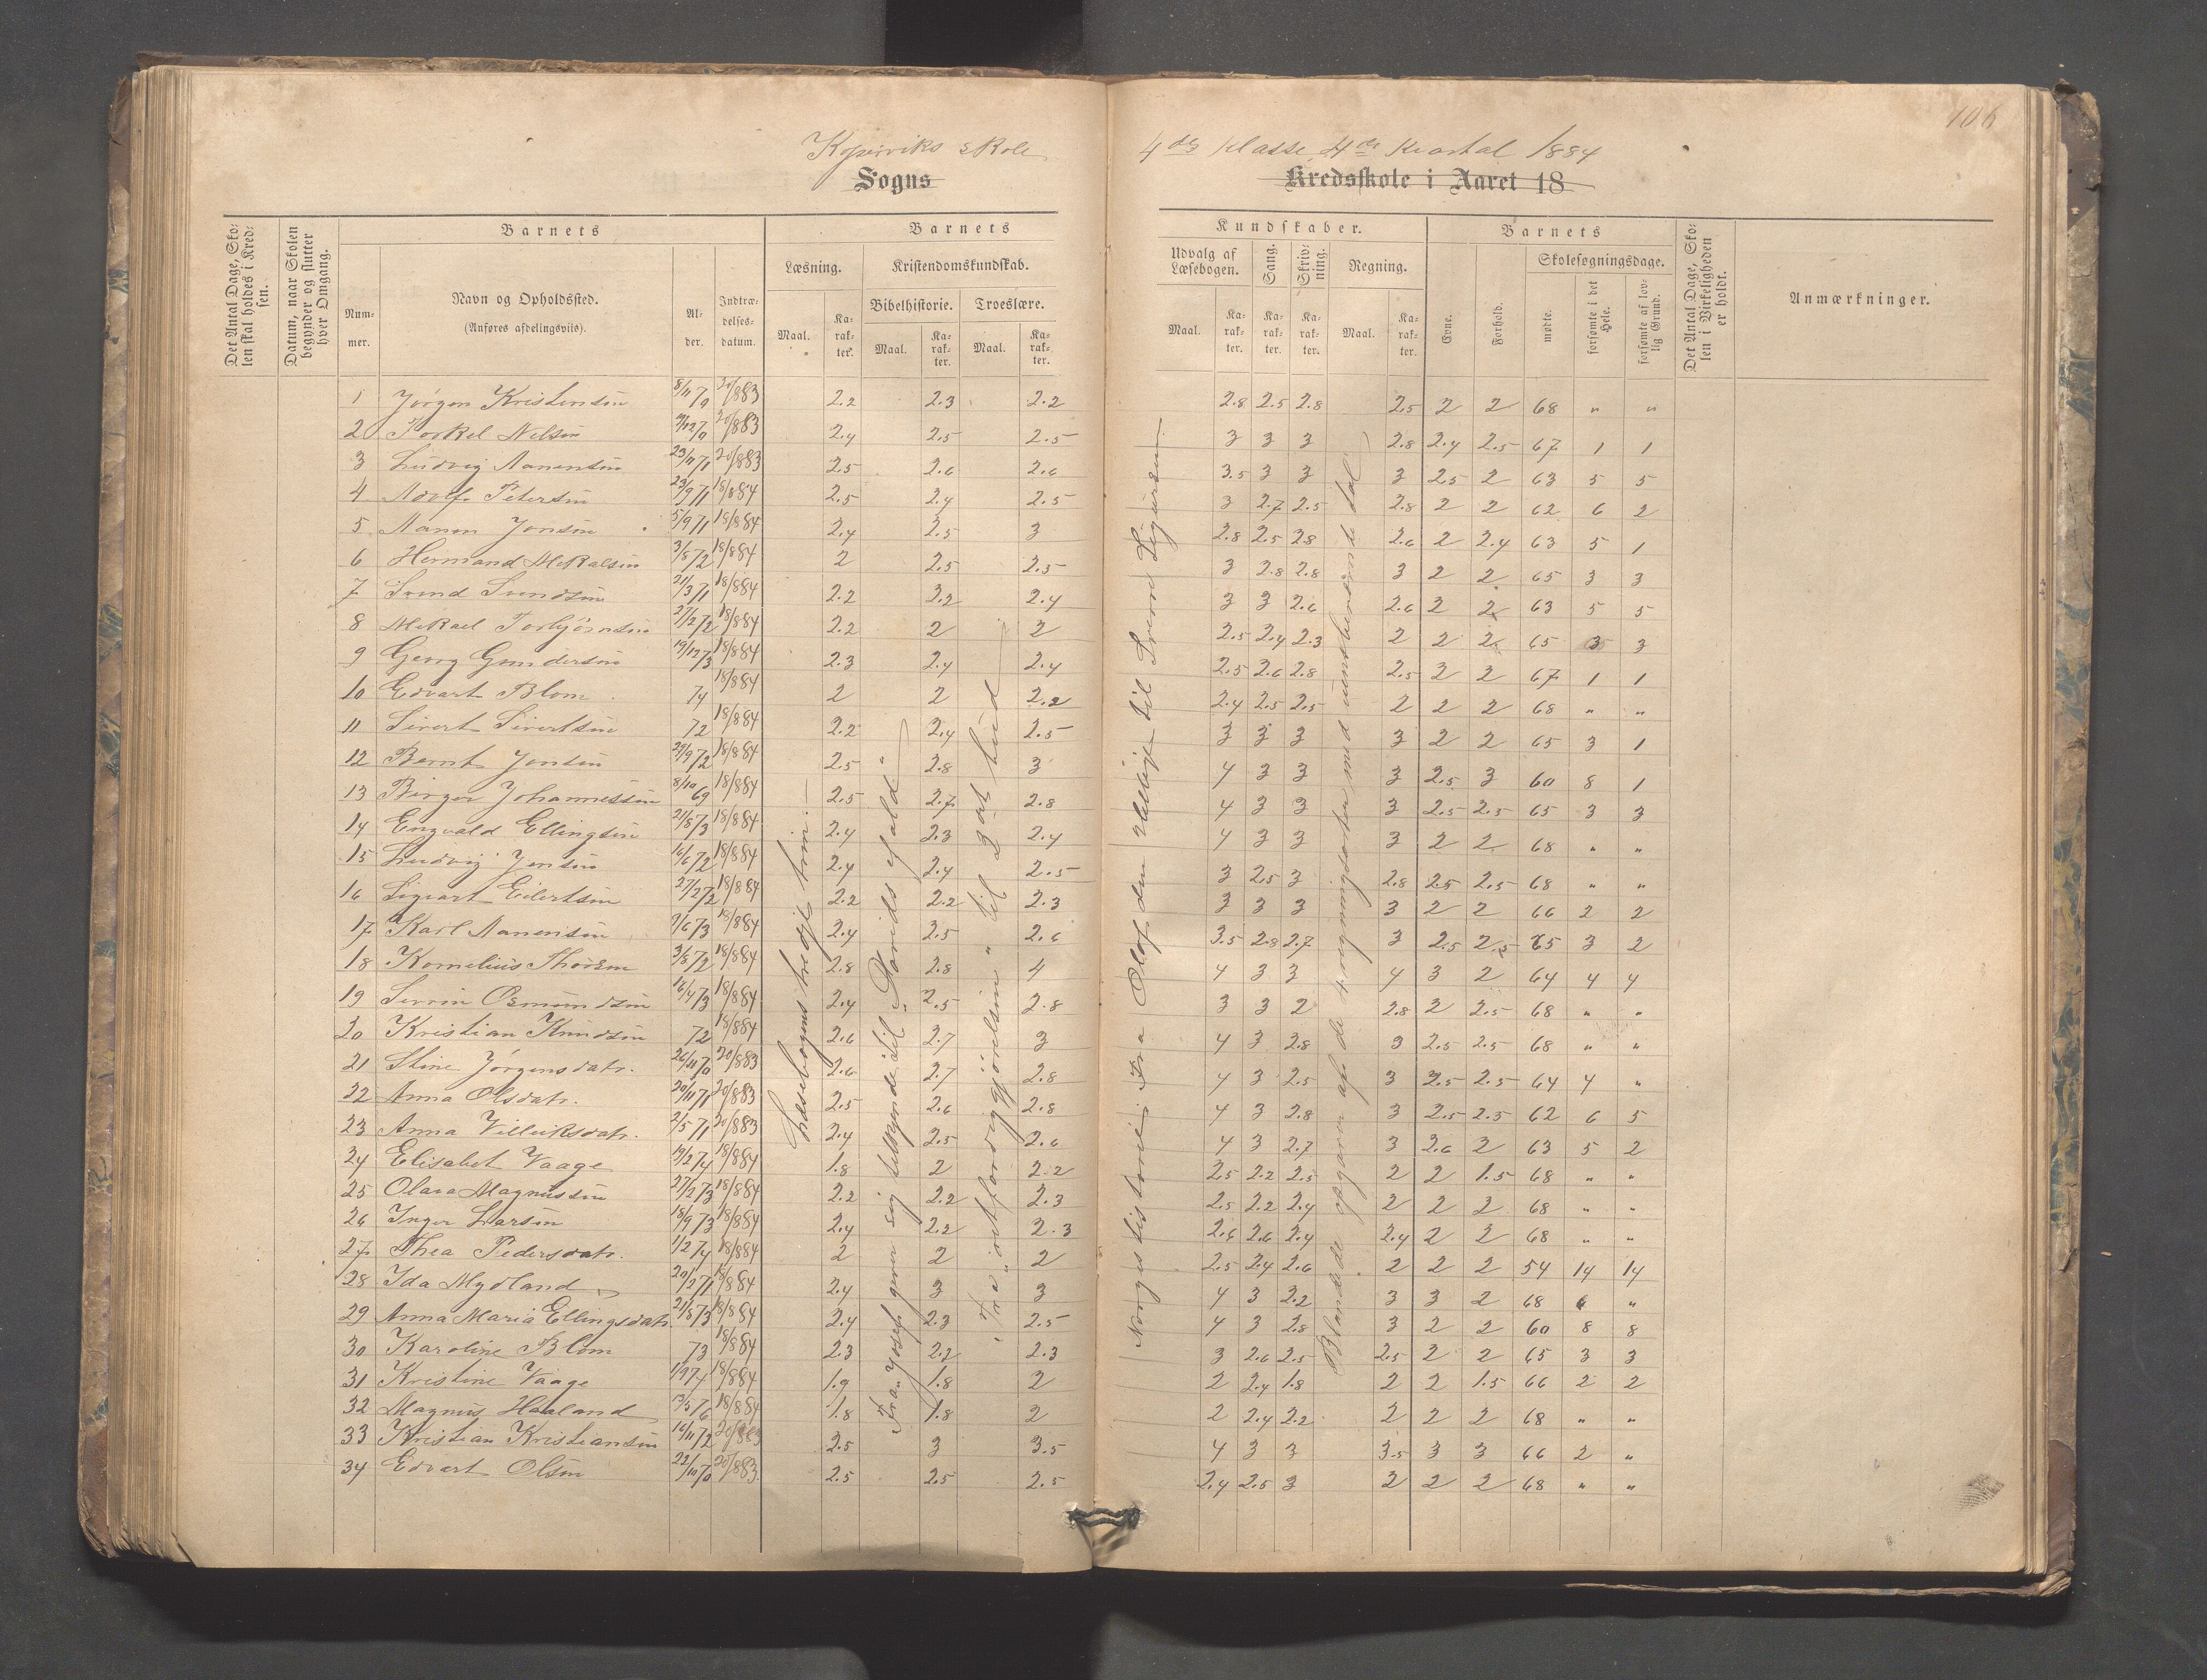 106
Kopervik skole 4de klasse 4de Kvartal 1884
Sogns Kredsskole i Aaret 18
Det Antal Dage, Skolen skal holdes i Kredsen.
Datum, naar Skolen begynder og slutter hver Omgang.
Barnets
Nummer.
Navn og Opholdssted.
(Anføres afdelingsviis).
Alder.
Indtrædelsesdatum.
Barnets Kundskaber.
Læsning.
Maal. Karakter.
Kristendomskundskab.
Bibelhistorie. Troeslære.
Maal. Karakter. Maal. Karakter.
Udvalg af Læsebogen.
Maal. Karakter.
Sang. Karakter.
Skrivning. Karakter.
Regning. Maal. Karakter.
Barnets
Evne. Forhold.
Skolesøgningsdage.
mødte. forsømte i det Hele. forsømte af lovlig Grund.
Det Antal Dage, Skolen i Virkeligheden er holdt.
Anmærkninger.
1 Jørgen Kristensen 20/883 2.2 2.3 2.2 2.8 2.5 2.8 2.5 2 2 68 " "
2 Torkel Nilsen 20/883 2.4 2.5 2.5 3 3 3 2.8 2.4 2.5 67 1 1
3 Ludvig Aanensen 23/11 71 20/883 2.5 2.6 2.6 3.5 3 3 3 2.5 2 63 5 5
4 Adolf Petersen 23/9 71 18/884 2.5 2.4 2.5 3 2.7 2.5 2.8 2 2 62 6 2
5 Aanen Jonsen 5/9 71 18/884 2.4 2.5 3 2.8 2.5 2.8 2.6 2 2.4 63 5 1
6 Hermand Mekalsen 3/8 72 18/884 2 2.5 2.5 3 2.8 2.8 3 2 2 65 3 3
7 Svend Svendsen 21/3 71 18/884 2.2 2.2 2.4 3 3 2.6 2.6 2 2 63 5 5
8 Mekael Torbjørnsen 27/2 72 18/884 2.2 2 2 2.5 2.4 2.3 2 2 2 65 3 3
9 Georg Gundersen 19/12 73 18/884 2.3 2.4 2.4 2.5 2.6 2.8 2.5 2 2 67 1 1
10 Edvart Blom 74 18/884 2 2 2.2 2.4 2.5 2.5 2 2 2 68 " "
11 Sivert Sivertsen 72 18/884 2.2 2.4 2.5 3 3 3 3 2 2 65 3 1
12 Bernt Jonsen 29/9 72 18/884 2.5 2.8 3 4 3 3 3 2.5 3 60 8 1
13 Birger Johannessen 8/10 69 18/884 2.5 2.7 2.8 4 3 3 3 2.5 2.5 65 3 3
14 Engvald Ellingsen 21/8 73 18/884 2.4 2.3 2.4 4 3 3 3 2 2 68 " "
15 Ludvig Jensen 16/6 72 18/884 2.4 2.4 2.5 3 2.5 3 2.8 2.5 2.5 68 " "
16 Sigvart Eilertsen 27/2 72 18/884 2.2 2.2 2.3 3 3 3 3 2 2 66 2 2
17 Karl Aanensen 18/884 2.4 2.5 2.6 3.5 2.8 2.7 3 2.5 2.5 65 3 2
18 Kornelius Thorsen 3/8 72 18/884 2.8 2.8 4 4 3 3 4 3 2 64 4 4
19 Osmundsen 18/884 2.4 2.5 2.8 3 3 2 2.8 2 2.5 68 " "
20 Kristian Knudsen 72 18/884 2.6 2.7 3 4 3 2.8 3 2.5 2.5 68 " "
21 Stine Jørgensdatr. 26/11 70 20/883 2.6 2.7 2.8 4 3 2.5 3 2.5 2.5 64 4 "
22 Anna Olsdatr. 20/11 71 20/883 2.5 2.6 2.8 4 3 2.8 3 2.5 2.5 62 6 5
23 Anna Villiksdatr. 2/5 71 20/883 2.4 2.5 2.6 4 3 2.7 3 2.6 2 63 5 2
24 Elisabet Vaage 19/2 74 18/884 1.8 2 2.2 2.5 2.2 2.5 2 2 1.5 68 " "
25 Olava Magnussen 27/2 73 18/884 2.2 2.2 2.3 2.5 2.2 2.4 2 2 2 68 " "
26 Inger Larsen 18/9 73 18/884 2.4 2.2 2.3 2.6 2.6 2.4 2.4 2 2 68 " "
27 Thea Pedersdatr. 1/2 74 18/884 2 2 2 2.5 2.4 2.6 2 2 2 54 14 14
28 Ida Mydland 20/2 71 18/884 2.4 3 3 4 3 2.2 3 3 2 68 "
29 Anna Maria Ellingsdatr. 21/8 73 18/884 2.4 2.3 2.5 4 3 2.8 3 2 2 60 8 8
30 Karoline Blom 73 18/884 2.3 2.2 2.3 3 2.6 2.5 2.5 2 2 65 3 3
31 Kristine Vaage 18/884 1.9 1.8 2 2 2.4 1.8 2 2 1.5 66 2 2
32 Magnus Haaland 18/884 1.8 1.8 2 2 2.4 2.2 2 2 2 68 " "
33 Kristian Kristiansen 19/11 72 20/883 2.5 3 3.5 4 3 3 3.5 3 3 66 2 "
34 Edvart Olsen 22/10 70 20/883 2.5 2.5 2.5 2.4 2.5 3 2 2 2 68 " "
Læsebogens tredje trin.
Fra "Josef giver sig tilkjende" til "Davids Fald"
Fra " til " 2det bud
Norges historie: Fra Olaf den Hellige til Sverre Sigurssen
Blandede opgaver af de 4 regningsarter med uensbenævnte tal